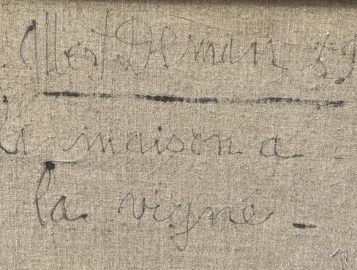 Albert Deman 59
La maison a
la vigne